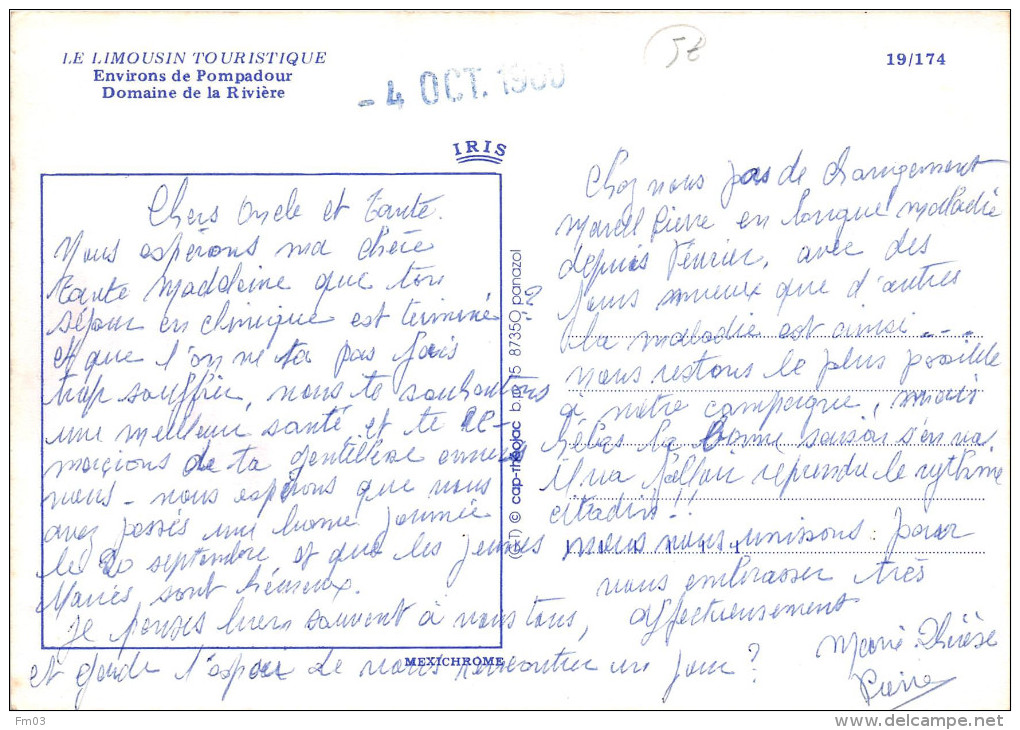 LE LIMOUSIN TOURISTIQUE
Environs de Pompadour
Domaine de la Rivière
- 4 OCT. 19
19/174
IRIS
Chers Oncle et Tante.
Nous espérons ma chère
tante Madeleine que ton
séjour en clinique est terminé
et que l'on ne ta pas fais
trop souffrir, nous te souhaitons
une meilleur santé et te re-
mercions de ta gentillesse envers
nous - nous espérons que vous
avez passés une bonne journée
le 20 septembre et que les jeunes
Mariés sont heureux.
Je penses bien souvent à vous tous,
et garde l'espoir de nous rencontrer un jour ?
MEXICHROME
© cap-théojac b.p. 15 87350 panazol
Chez nous pas de changement
Marcel Pierre en longue maladie
depuis Février, avec des
jours mieux que d'autres
la maladie est ainsi ....
nous restons le plus possible
à notre campagne, mais
hélas la bonne saison s'en va
Il va falloir reprendre le rythme
citadin !!
nous nous unissons pour
vous embrasser très
affectueusement
Marie-Thérèse
Pierre
Fm03
www.delcampe.net